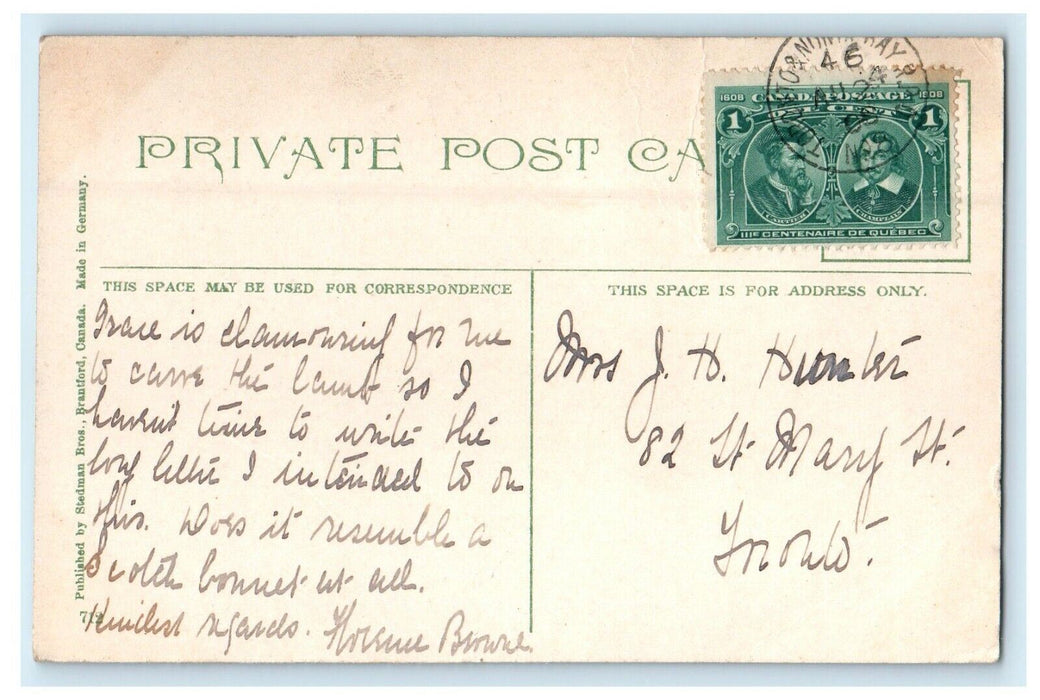 PRIVATE POST CA
1608 CANADA POSTAGE 1908
1 CENT 1
CARTIER CHAMPLAIN
IIIE CENTENAIRE DE QUÉBEC
46
AU 24
08
No
THIS SPACE MAY BE USED FOR CORRESPONDENCE
Grace is clamouring for me
to carve the lamb so I
havent time to write the
long letter I intended to on
this. Does it resemble a
Scotch bonnet at all.
Kindest regards. Florence Browne.
THIS SPACE IS FOR ADDRESS ONLY.
Mrs J. H. Hunter
82 St Mary St.
Toronto.
Published by Stedman Bros., Brantford, Canada. Made in Germany.